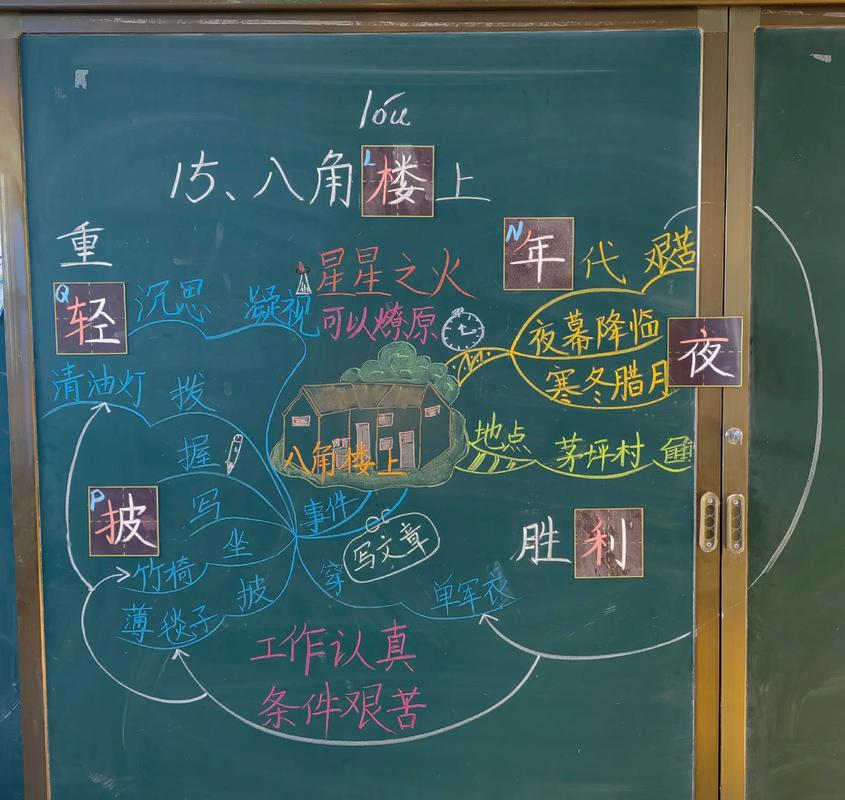 lóu
15、八角楼上
L
重
N
年代
艰苦
星星之火
可以燎原
Q
轻
沉思
凝视
夜幕降临
夜
寒冬腊月
清油灯
拨
握
八角楼上
地点
茅坪村
P
披
写
事件
坐
写文章
胜利
竹椅
穿
披
单军衣
薄毯子
工作认真
条件艰苦